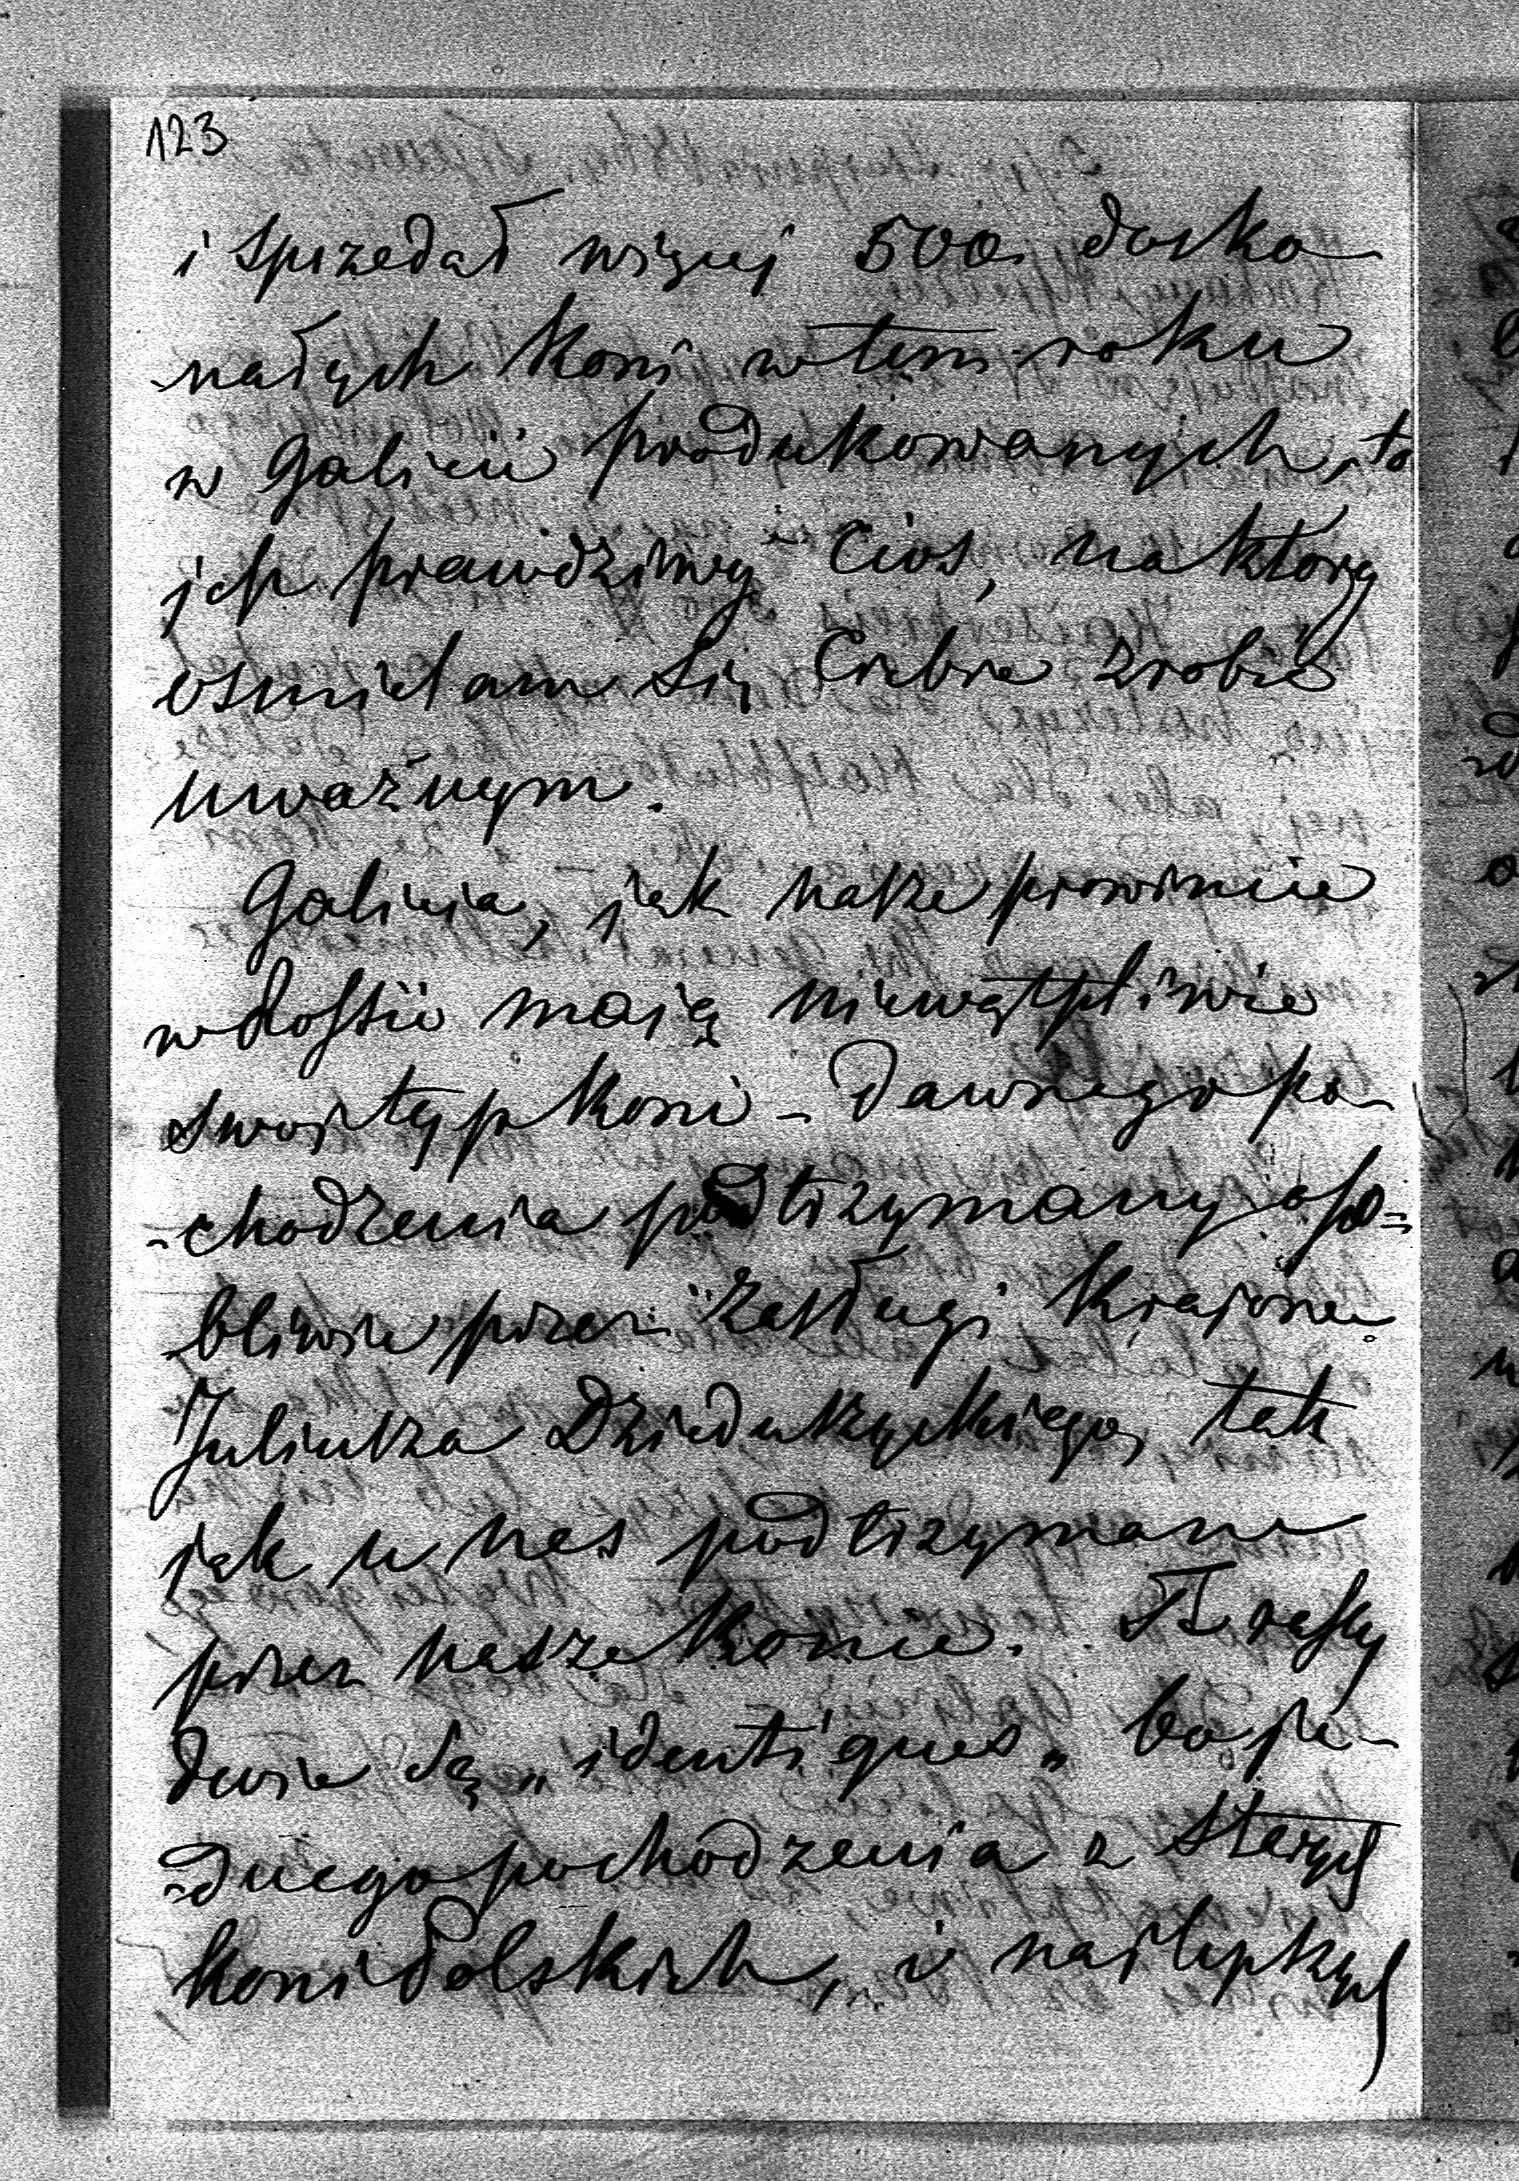 123
i sprzedał więcej 500 dosko-
nałych koni w tem roku
w Galicii produkowanych, to
jest prawdziwy cios, na który
osmielam się Ciebie zrobić
uważnym.
Galicia, jak nasze prowincie
w Rossii mają niewątpliwie
swoj typ koni - dawnego po-
-chodzenia podtrzymany oso=
bliwie przez zasługi krajowe
Juliusza Dzieduszyckiego, tak
jak u nas podtrzymane
przez nasze konie. Te rassy
dwie są „identiques„ bo je-
-dnego pochodzenia z starych
koni Polskich, i najlepszych